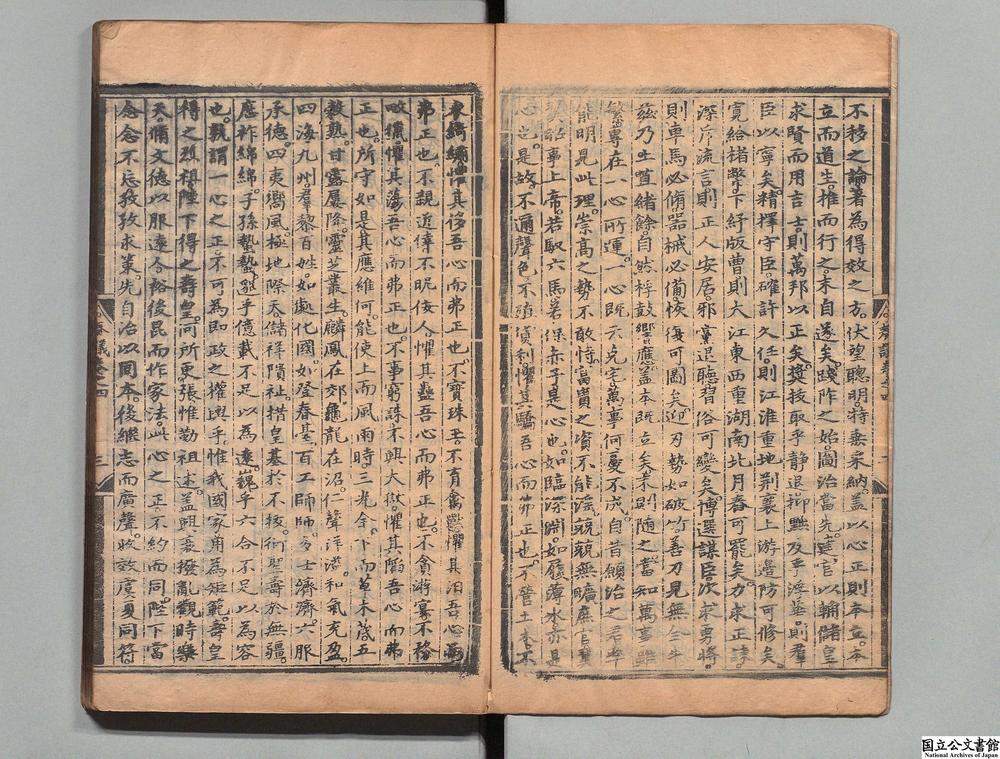 不移之論著為得效之方。伏望聰明。特垂采納蓋以心正則本立。本
立而道生。推而行之。末自遂矣。踐阼之始圖治當先。建官以輔儲皇
求賢而用吉士。則萬邦以正矣。獎技取乎靜退。抑黜及乎浮華。則羣
臣以寧矣。精擇守臣。確許久任。則江淮重地荆襄上游。邊防可修矣。
寬給楮幣。下紓版曹。則大江東西重湖南北月舂可罷矣。力求正諫
深斥流言。則正人安居。邪黨退聽。習俗可變矣。博選謀臣。次求勇將。
則車馬必脩。器械必備。恢復可圖矣。迎刃勢如破竹。善刀見無全牛
茲乃土苴緒餘。自然桴鼓響應。蓋本既立矣。末則隨之。當知萬事雖
繁。專在一心所運。一心既云克定。萬事何憂不成。自昔願治之君。率
能明見此理。崇高之勢不敢恃。富貴之資不能淫。兢兢無曠庶官。翼
翼昭事上帝。若馭六馬。若保赤子。是心也。如臨深淵。如履薄水。亦是
心也。是故。不邇聲色。不殖貨利。懼其驕吾心而弗正也。不營土木。不
衣綺繡。懼其侈吾心而弗正也。不寶珠玉。不育禽獸。懼其汨吾心而
弗正也。不親近倖。不昵佞人。懼其蠱吾心而弗正也。不貪游宴。不務
畋獵。懼其蕩吾心而弗正也。不事窮誅。不興大獄。懼其陷吾心而弗
正也。所守如是。其應維何。能使上而風雨時。三光全。下而草木茂。五
穀熟。甘露屢降。靈芝叢生。麟鳳在郊。龜龍在沼。仁聲洋溢。和氣充盈。
四海九州。羣黎百姓。如處化國。如登春臺。百工師師。多士濟濟。六服
承德。四夷嚮風。極地際天。儲祥隤社。措皇基於不拔。衍聖壽於無疆。
應祚綿綿。子孫蟄蟄。邈乎億載不足以為遠。巍乎六合不足以為容
也。孰謂一心之正。不可為卽政之權輿乎。惟我國家角為矩範。壽皇
得之烈祖。陛下得之壽皇。何所更張。惟勤祖述。蓋興衰撥亂。觀時樂
天。脩文德以服遠人。裕後昆而作家法。此心之正。不約而同。陛下當
念念不忘。孜孜求策。先自治以固本。後繼志而廣聲。收效虞夏同符。
奏議卷之四
三
国立公文書館
National Archives of Japan